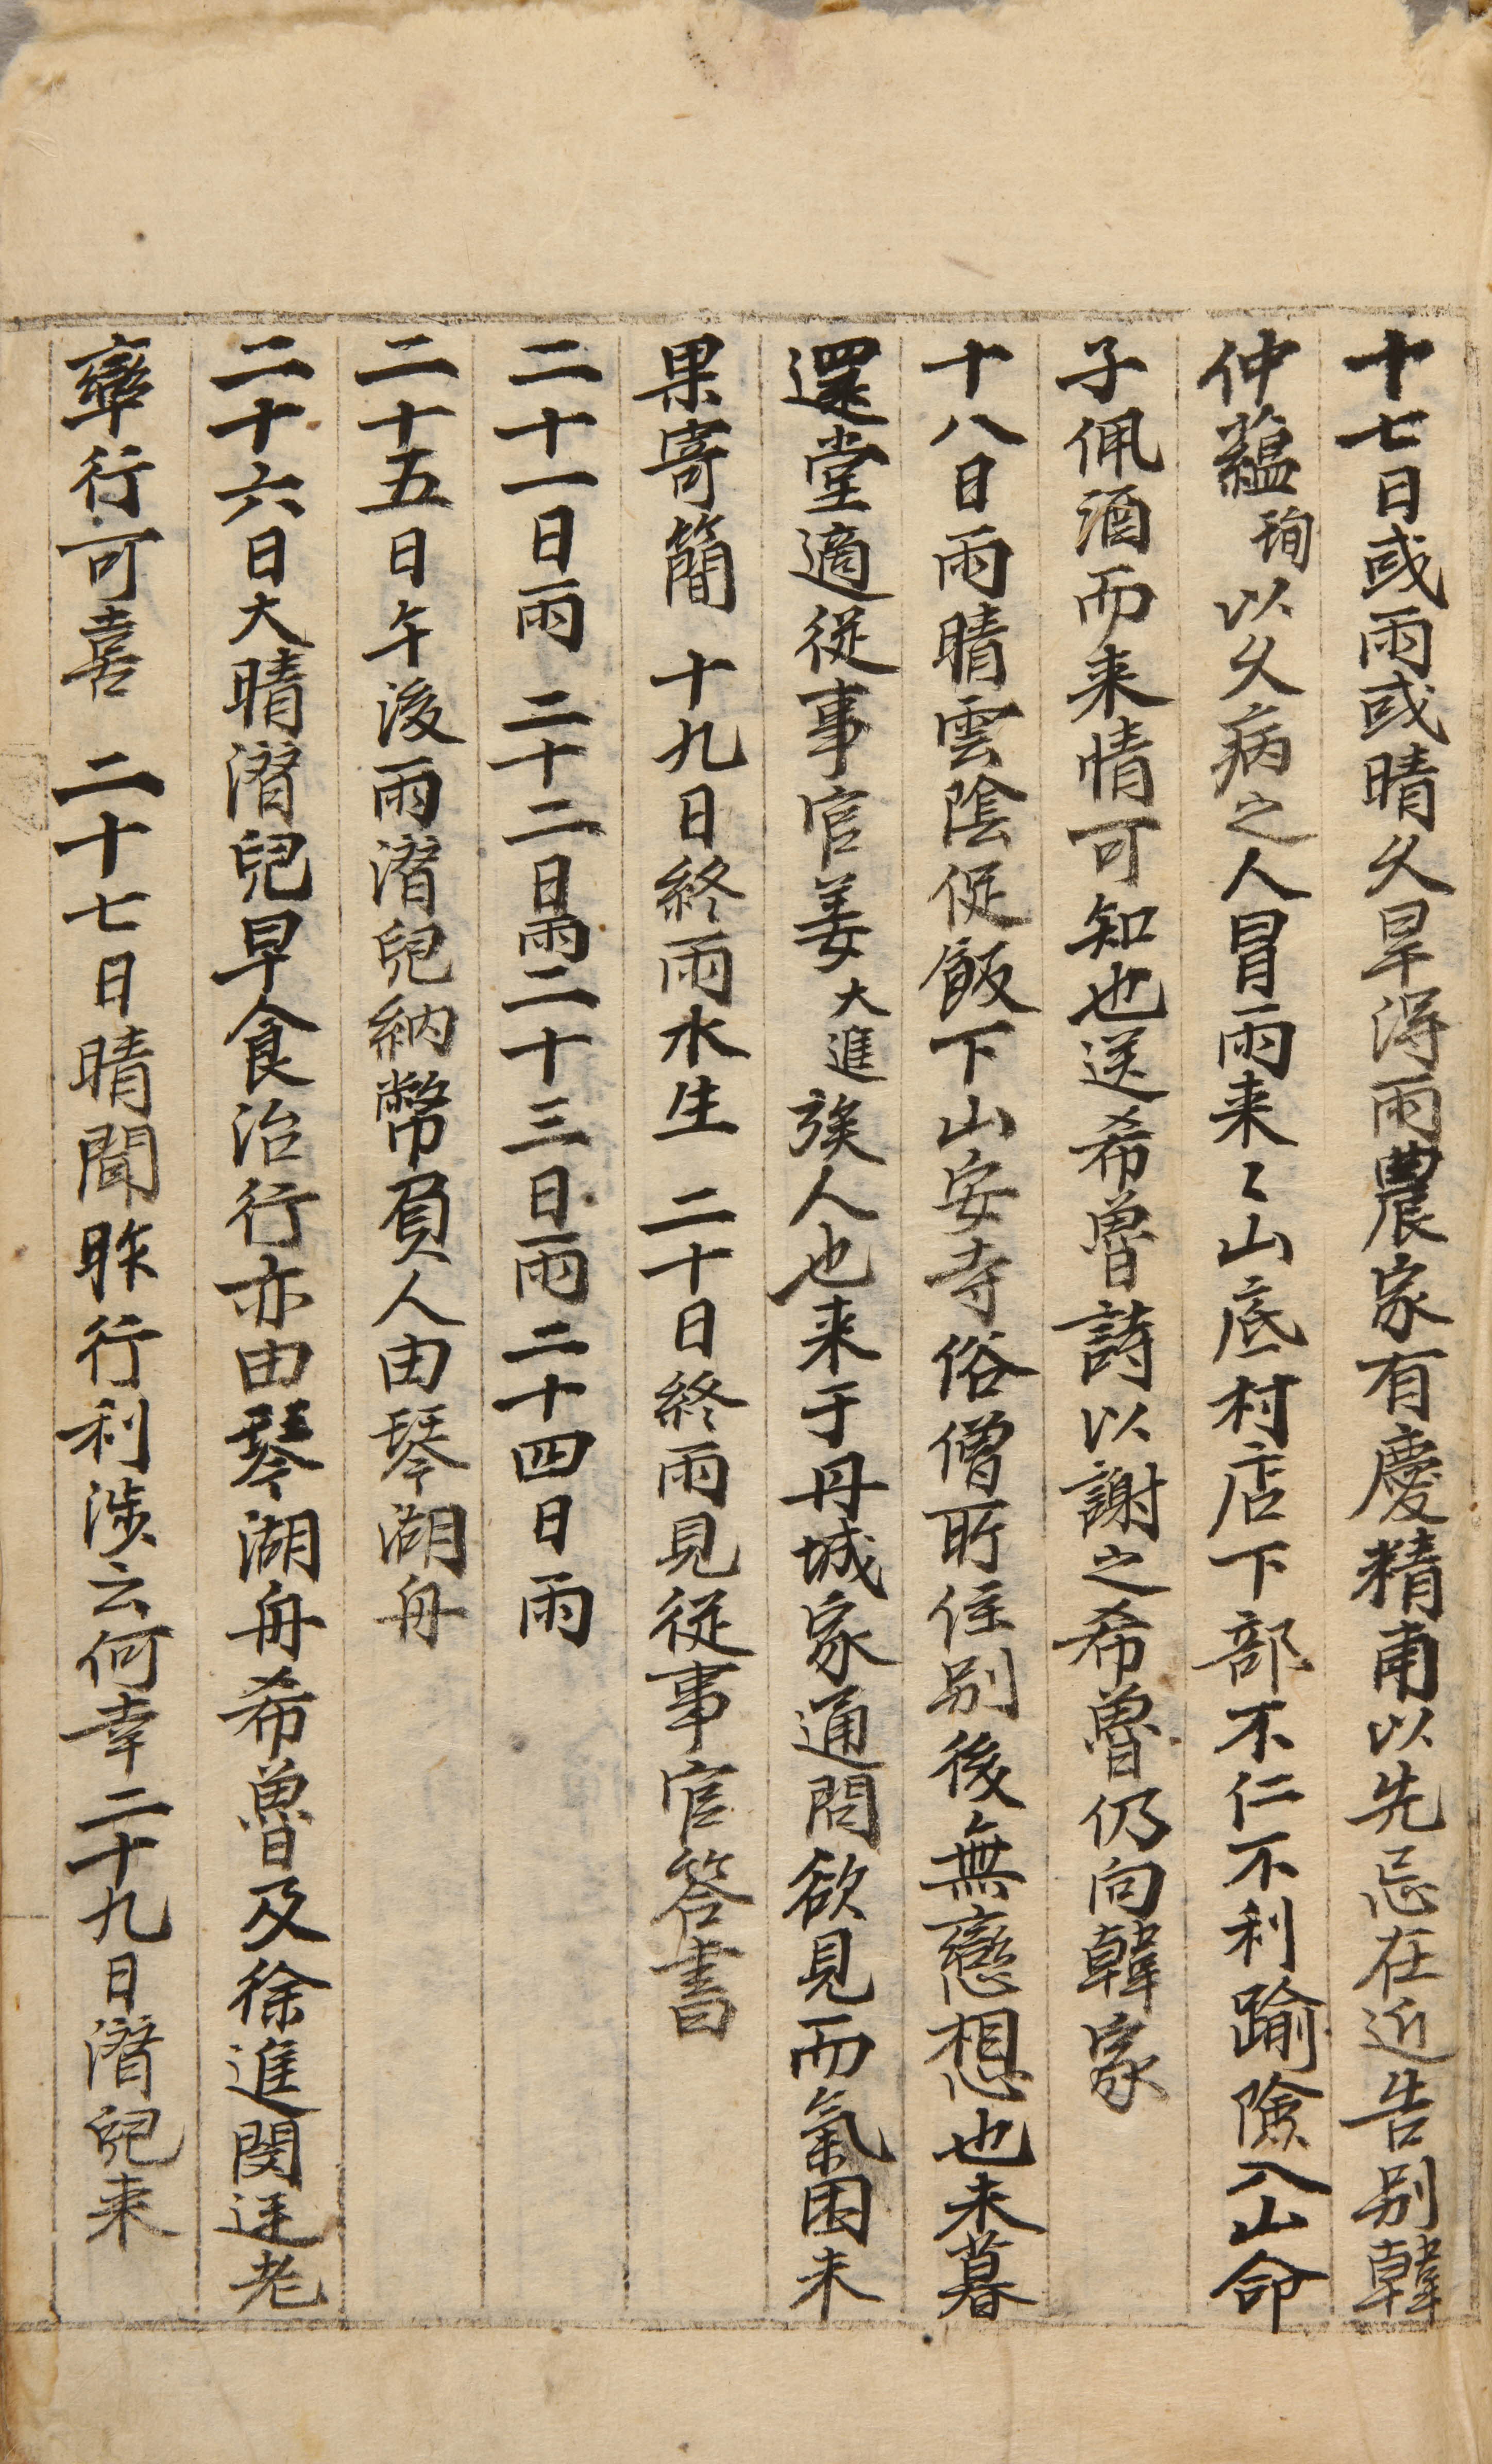 十七日或雨或晴久旱得雨農家有慶精甫以先忌在近告別韓
仲蘊珣以久病之人冒雨来〻山底村店下部不仁不利踰險入山命
子佩酒而来情可知也送希魯詩以謝之希魯仍向韓家
十八日雨晴雲陰促飯下山安寺俗僧所住別後無戀想也未暮
還堂適從事官姜大進族人也来于丹城家通問欲見而氣困未
果寄簡 十九日終雨水生 二十日終雨見從事官答書
二十一日雨 二十二日雨二十三日雨二十四日雨
二十五日午後雨潛兒納幣負人由琴湖舟
二十六日大晴潛兒早食治行亦由琴湖舟希魯及徐進閔廷老
率行可喜 二十七日晴聞昨行利涉云何幸二十九日潛兒来